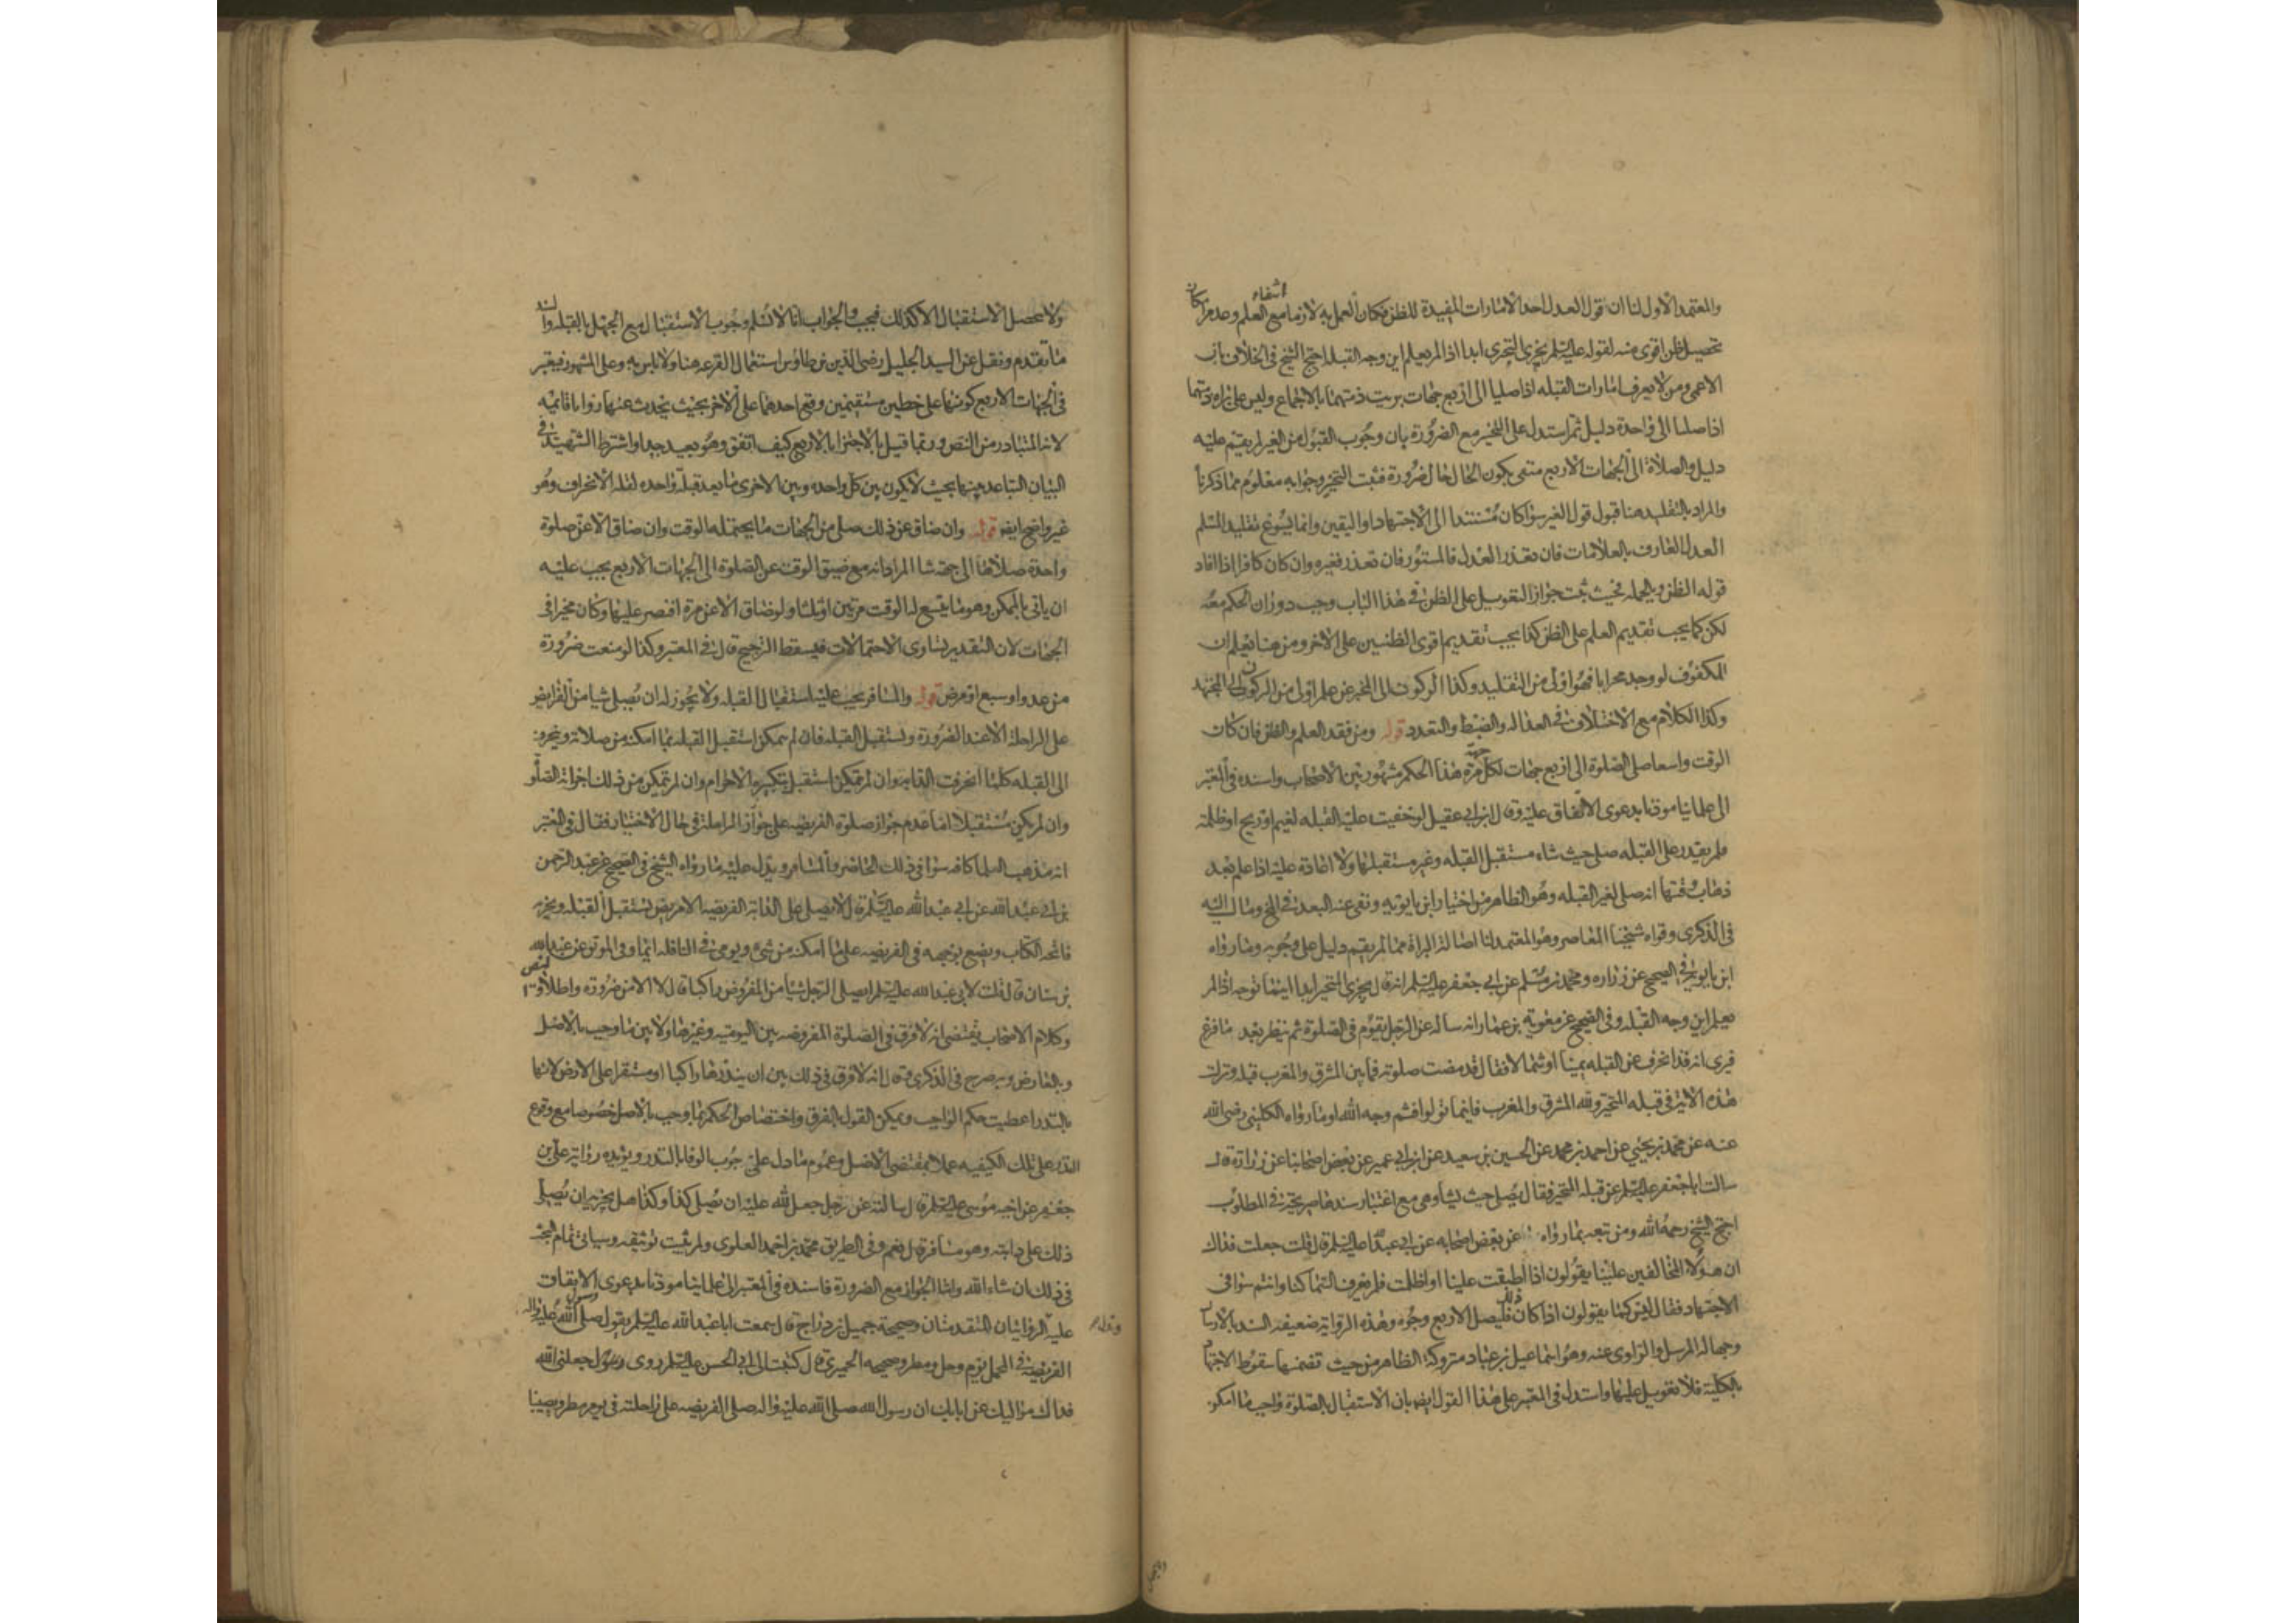 والمعتمد الاول لنا ان قول العدل احد الامارات المفيدة للظن فكان العمل به لازما مع انتفاء العلم وعدم امكان
تحصيل ظن اقوى منه لقوله عليه السلم يجزى التحرى ابدا اذا لم يعلم اين وجه القبله احتج الشيخ فى الخلاف بان
الاعمى ومن لا يعرف امارات القبله اذا صليا الى اربع جهات بريت ذمتهما بالاجماع وليس على براه ذمتهما
اذا صليا الى واحدة دليل ثم استدل على التخير مع الضرورة بان وجوب القبول من الغير لم يقيم عليه
دليل والصلاة الى الجهات الاربع منفى بكون الحال حال ضرورة فثبت التخير وجوابه معلوم مما ذكرنا
والمراد بالتقليد هنا قبول قول الغير سوا كان مستندا الى الاجتهاد او اليقين وانما يسوغ تقليد المسلم
العدل العارف بالعلامات فان تعذر العدل فالمستور فان تعذر فغيره وان كان كافرا اذا افاد
قوله الظن وبالجمله فحيث ثبت جواز التعويل على الظن فى هذا الباب وجب دوران الحكم معه
لكن كما يجب تقديم العلم على الظن كذا يجب تقديم اقوى الظنين على الاخر ومن هنا يعلم ان
المكفوف لو وجد محرابا فهو اولى من التقليد وكذا الركون الى المخبر عن علم اولى من الركون الى المجتهد
وكذا الكلام مع الاختلاف فى العداله والضبط والتعدد قوله ومن فقد العلم والظن فان كان
الوقت واسعا صلى الصلوة الى اربع جهات لكل جهة مرة هذا الحكم مشهور بين الاصحاب واسنده فى المعتبر
الى علمائنا موذنا بدعوى الاتفاق عليه وقال ابن ابى عقيل لو خفيت عليه القبله لغيم او ريح او ظلمة
فلم يقدر على القبله صلى حيث شاء مستقبل القبله وغير مستقبلها ولا اعادة عليه اذا علم بعد
ذهاب وقتها انه صلى لغير القبله وهو الظاهر من اختيار ابن بابويه ونفى عنه البعد فى المخ ومال اليه
فى الذكرى وقواه شيخنا المعاصر وهو المعتمد لنا اصالة البراة مما لم يقيم دليل على وجوبه وما رواه
ابن بابويه فى الصحيح عن زراره ومحمد بن مسلم عن ابى جعفر عليه السلم انه قال يجزى المتحير ابدا اينما توجه اذا لم
يعلم اين وجه القبله وفى الصحيح عن معويه بن عمار انه ساله عن الرجل يقوم فى الصلوة ثم ينظر بعد ما فرغ
فيرى انه قد انحرف عن القبله يمينا او شمالا فقال قد مضت صلوته فما بين المشرق والمغرب قبله ونزلت
هذه الايه فى قبله المتحير ولله المشرق والمغرب فاينما تولوا فثم وجه الله وما رواه الكلينى رضى الله
عنه عن محمد بن يحيى عن احمد بن محمد عن الحسين بن سعيد عن ابن ابى عمير عن بعض اصحابنا عن زرارة قال
سالت ابا جعفر عليه السلم عن قبله المتحير فقال يصلى حيث يشا وهى مع اعتبار سندها صريحة فى المطلوب
احتج الشيخ رحمه الله ومن تبعه بما رواه عن بعض اصحابه عن ابى عبد الله عليه السلم قال قلت جعلت فداك
ان هولا المخالفين علينا يقولون اذا اطبقت علينا او اظلمت فلم يعرف السما كنا وانتم سوا فى
الاجتهاد فقال ليس كما يقولون اذا كان ذلك فليصل لاربع وجوه وهذه الرواية ضعيفه السند بالارسال
وجهالة المرسل والراوى عنه وهو اسماعيل بن عباد متروكة الظاهر من حيث تضمنها سقوط الاجتهاد
بالكلية فلا تعويل عليها واستدل فى المعتبر على هذا القول ايضا بان الاستقبال بالصلوة واجب ما امكن
ولا يحصل الاستقبال الا كذلك فيجب والجواب انا لا نسلم وجوب الاستقبال مع الجهل بالقبله والسند
ما تقدم ونقل عن السيد الجليل رضى الدين بن طاوس استعمال القرعه هنا ولا باس به وعلى المشهور فيعتبر
فى الجهات الاربع كونها على خطين مستقيمين وقع احدهما على الاخر بحيث يحدث عنهما زوايا قائمه
لانه المتبادر من النص وربما قيل بالاجتزا بالاربع كيف اتفق وهو بعيد جدا واشترط الشهيد فى
البيان التباعد بينها بحيث لا يكون بين كل واحده وبين الاخرى ما يعد قبلة واحده لقلة الانحراف وهو
غير واضح ايضا قوله وان ضاق عن ذلك صلى من الجهات ما يحتمله الوقت وان ضاق الا عن صلوة
واحدة صلاها الى جهة شا المراد انه مع ضيق الوقت عن الصلوة الى الجهات الاربع يجب عليه
ان ياتى بالممكن وهو ما يتسع له الوقت مرتين او ثلثا ولو ضاق الا عن مرة اقتصر عليها وكان مخيرا فى
الجهات لان التقدير تساوى الاحتمالات فيسقط الترجيح قال فى المعتبر وكذا لو منعت ضرورة
من عدو او سبع او مرض قوله والمسافر يجب عليه استقبال القبله ولا يجوز له ان يصلى شيا من الفرايض
على الراحلة الا عند الضرورة ويستقبل القبله فان لم يمكن استقبل القبله بما امكنه من صلاته وينحرف
الى القبله كلما انحرفت الدابه وان لم يتمكن استقبل بتكبيرة الاحرام وان لم يتمكن من ذلك اجزاته الصلوة
وان لم يكن مستقبلا اما عدم جواز صلوة الفريضه على الراحلة فى حال الاختيار فقال فى المعتبر
انه مذهب العلما كافه سوا فى ذلك الحاضر والمسافر ويدل عليه ما رواه الشيخ فى الصحيح عن عبد الرحمن
بن ابى عبد الله عن ابى عبد الله عليه السلم قال لا يصلى على الدابة الفريضه الا مريض يستقبل القبله ويجزيه
فاتحه الكتاب ويضع بوجهه فى الفريضه على ما امكنه من شى ويومى فى النافله ايما وفى الموثق عن عبد الله
بن سنان قال قلت لابى عبد الله عليه السلم ايصلى الرجل شيئا من المفروض راكبا قال لا الا من ضرورة واطلاق النص
وكلام الاصحاب يقتضى انه لا فرق فى الصلوة المفروضه بين اليوميه وغيرها ولا بين ما وجب بالاصل
وبالعارض وبه صرح فى الذكرى وقال انه لا فرق فى ذلك بين ان ينذرها راكبا او مستقرا على الارض لانها
بالنذر اعطيت حكم الواجب ويمكن القول بالفرق واختصاص الحكم بما وجب بالاصل خصوصا مع وقوع
النذر على تلك الكيفيه عملا بمقتضى الاصل وعموم ما دل على وجوب الوفا بالنذر ويؤيده رواية على بن
جعفر عن اخيه موسى عليه السلم قال سالته عن رجل جعل لله عليه ان يصلى كذا وكذا هل يجزيه ان يصلى
ذلك على دابته وهو مسافر قال نعم وفى الطريق محمد بن احمد العلوى ولم يثبت توثيقه وسياتى تمام البحث
فى ذلك ان شاء الله واما الجواز مع الضرورة فاسنده فى المعتبر الى علمائنا موذنا بدعوى الاتفاق
عليه الروايتان المتقدمتان وصحيحة جميل بن دراج قال سمعت ابا عبد الله عليه السلم يقول صلى رسول الله عليه واله
الفريضه فى المحمل يوم وحل ومطر وصحيحه الحميرى قال كتبت الى ابى الحسن عليه السلم روى جعلنى الله
فداك مواليك عن ابايك ان رسول الله صلى الله عليه واله صلى الفريضه على راحلته فى يوم مطر ويصيبنا